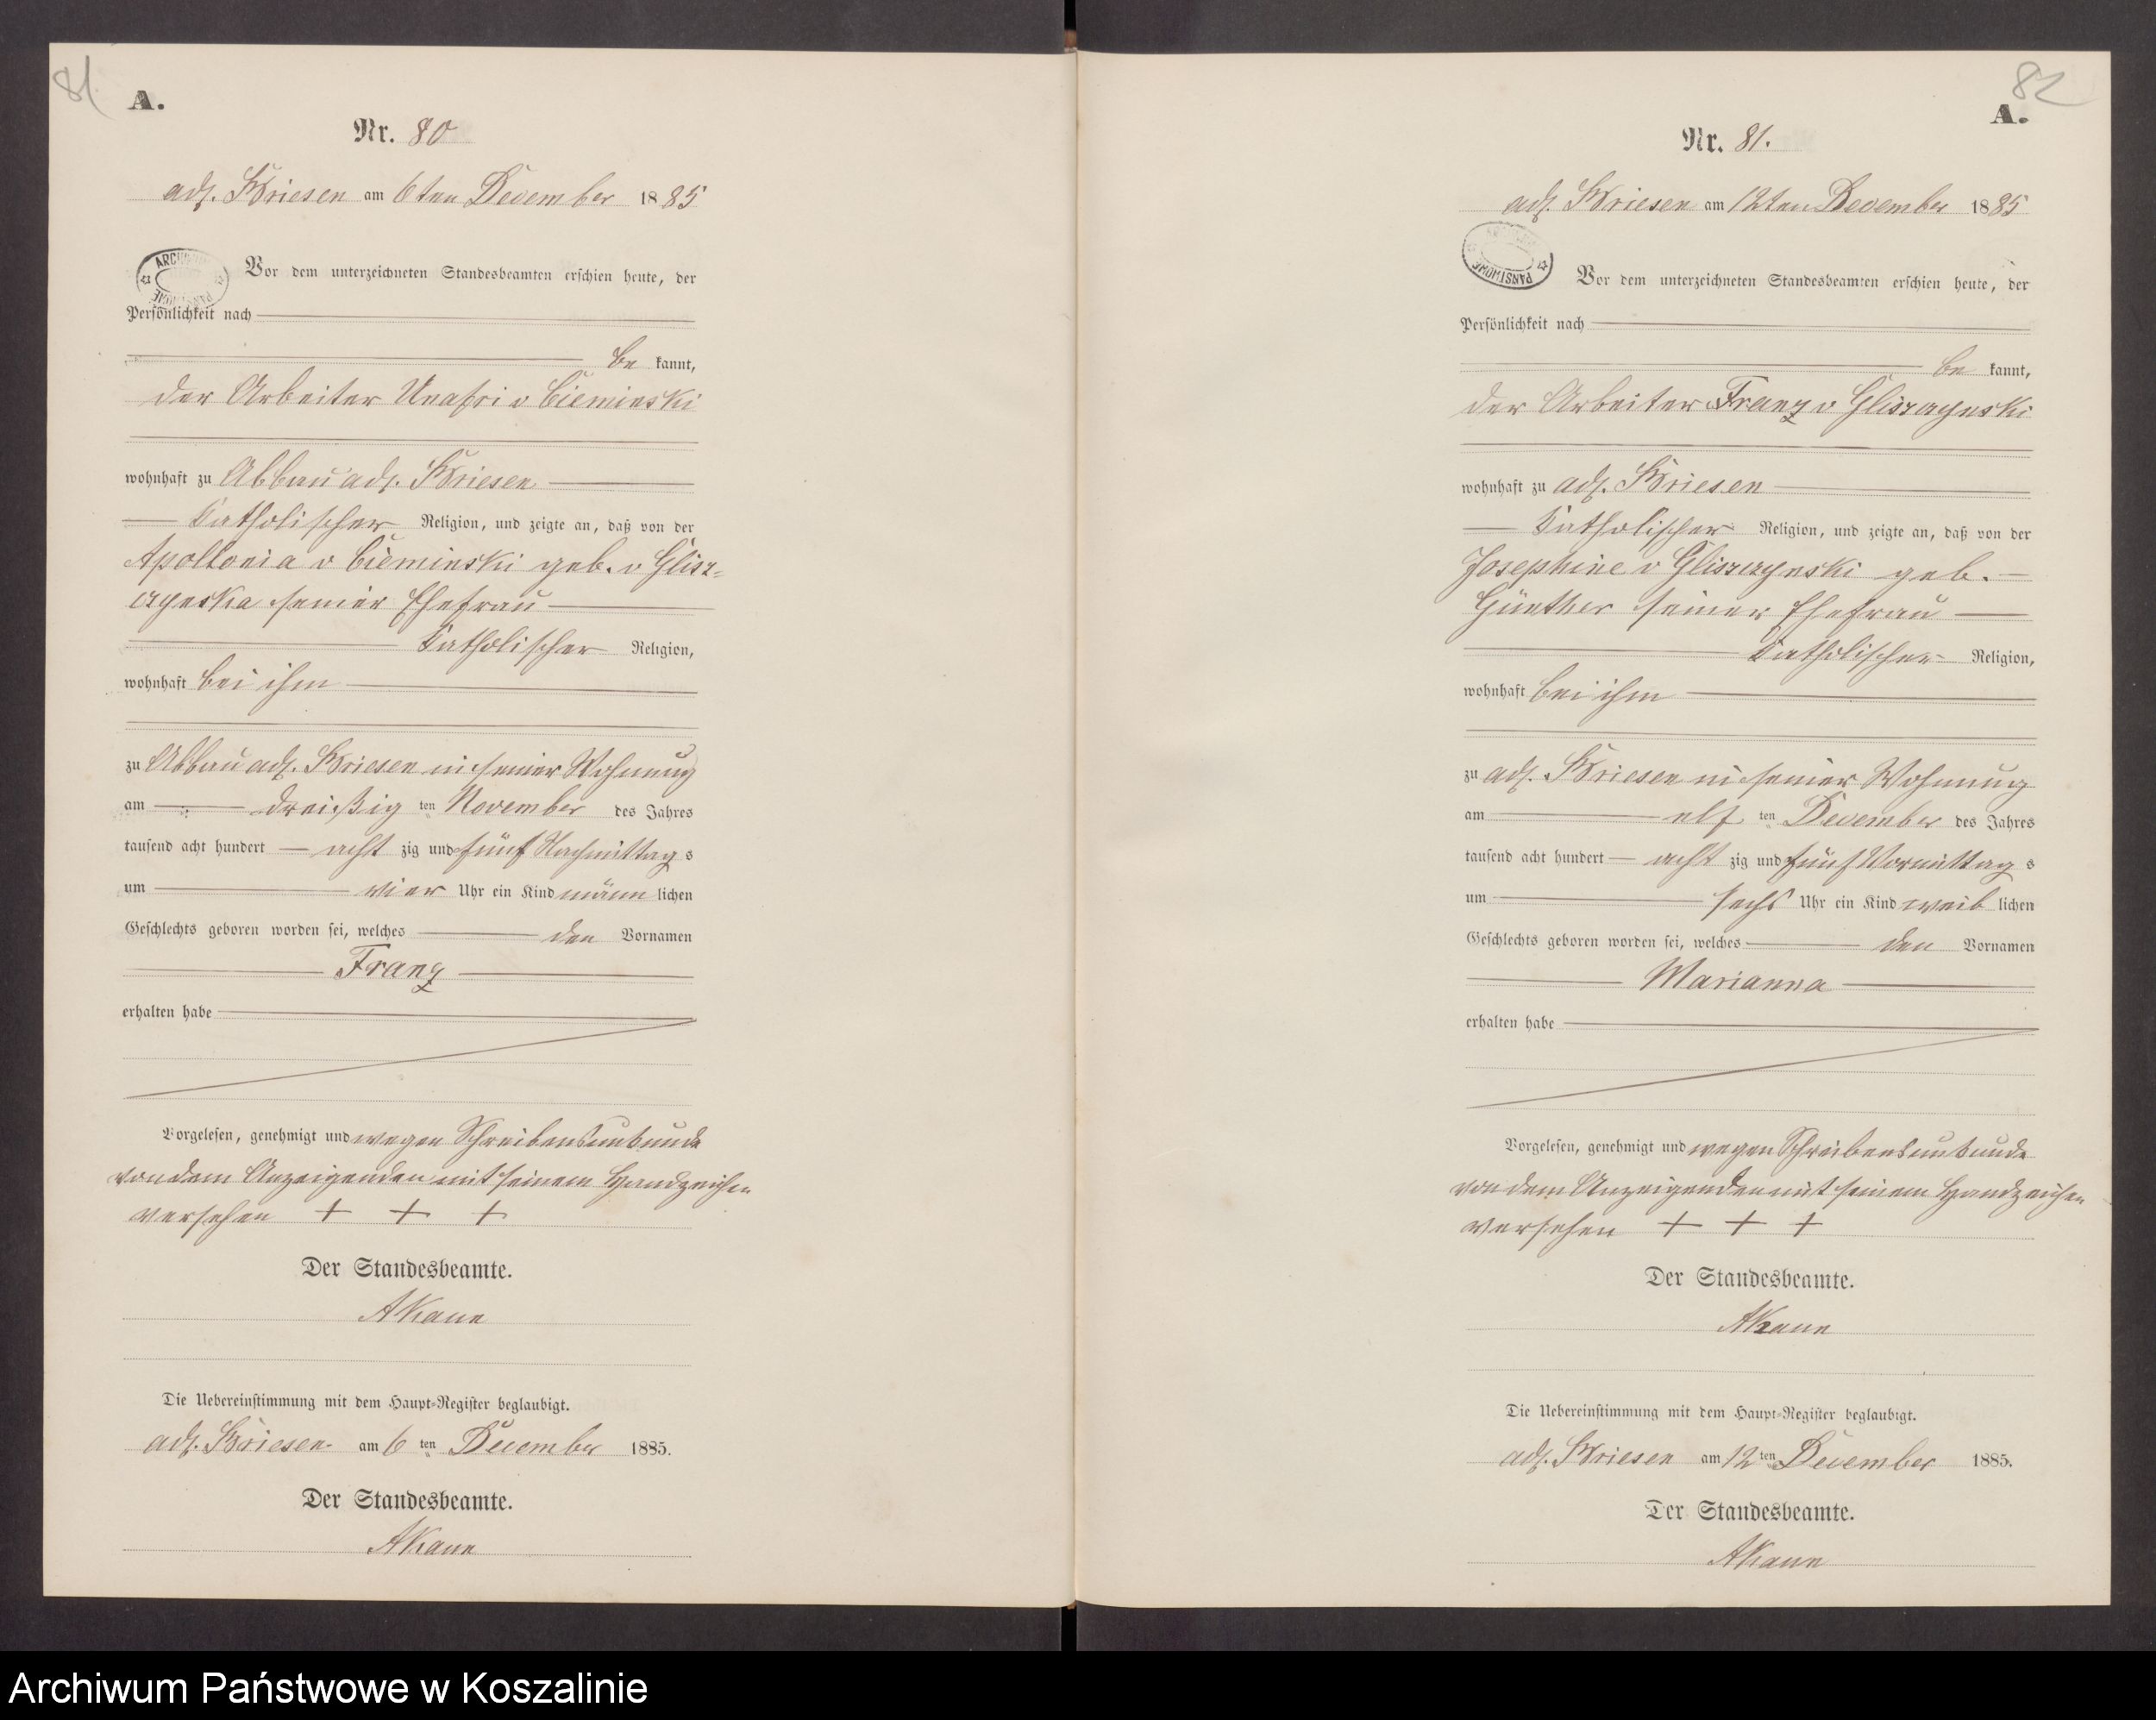 81
A.
Nr. 80
adl. Briesen am 6ten December 1885
ARCHIWUM PAŃSTWOWE
Vor dem unterzeichneten Standesbeamten erschien heute, der
Persönlichkeit nach
be kannt,
der Arbeiter v Cieminski
wohnhaft zu Abbau adl. Briesen
Katholischer Religion, und zeigte an, daß von der
Apollonia v Cieminski geb. v Glisz-
czynska seiner Ehefrau
Katholischer Religion,
wohnhaft bei ihm
zu Abbau adl. Briesen in seiner Wohnung
am dreißig ten November des Jahres
tausend acht hundert acht zig und fünf Nachmittag s
um vier Uhr ein Kind männ lichen
Geschlechts geboren worden sei, welches den Vornamen
Franz
erhalten habe
Vorgelesen, genehmigt und wegen Schreibensunkunde
von dem Anzeigenden mit seinem Handzeichen
versehen + + +
Der Standesbeamte.
A Kann
Die Uebereinstimmung mit dem Haupt-Register beglaubigt.
adl. Briesen am 6 ten December 1885.
Der Standesbeamte.
A Kann
82
A.
Nr. 81.
adl. Briesen am 12ten December 1885
ARCHIWUM PAŃSTWOWE
Vor dem unterzeichneten Standesbeamten erschien heute, der
Persönlichkeit nach
be kannt,
der Arbeiter Franz v Gliszczynski
wohnhaft zu adl. Briesen
Katholischer Religion, und zeigte an, daß von der
Josephine v Gliszczynski geb.
Günther seiner Ehefrau
Katholischer Religion,
wohnhaft bei ihm
zu adl. Briesen in seiner Wohnung
am elf ten December des Jahres
tausend acht hundert acht zig und fünf Vormittag s
um sechs Uhr ein Kind weib lichen
Geschlechts geboren worden sei, welches den Vornamen
Marianna
erhalten habe
Vorgelesen, genehmigt und wegen Schreibensunkunde
von dem Anzeigenden mit seinem Handzeichen
versehen + + +
Der Standesbeamte.
A Kann
Die Uebereinstimmung mit dem Haupt-Register beglaubigt.
adl. Briesen am 12 ten December 1885.
Der Standesbeamte.
A Kann
Archiwum Państwowe w Koszalinie